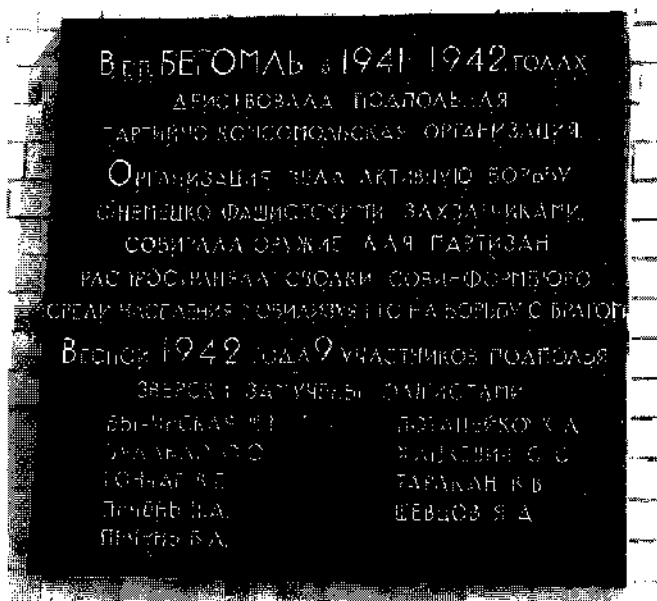 В Г.П. БЕГОМЛЬ в 1941-1942 ГОДАХ
ДЕЙСТВОВАЛА ПОДПОЛЬНАЯ
ПАРТИЙНО КОМСОМОЛЬСКАЯ ОРГАНИЗАЦИЯ.
ОРГАНИЗАЦИЯ ВЕЛА АКТИВНУЮ БОРЬБУ
С НЕМЕЦКО ФАШИСТСКИМИ ЗАХВАТЧИКАМИ,
СОБИРАЛА ОРУЖИЕ ДЛЯ ПАРТИЗАН
РАСПРОСТРАНЯЛА СВОДКИ СОВИНФОРМБЮРО
СРЕДИ НАСЕЛЕНИЯ МОБИЛИЗУЯ ЕГО НА БОРЬБУ С ВРАГОМ
ВЕСНОЙ 1942 ГОДА 9 УЧАСТНИКОВ ПОДПОЛЬЯ
ЗВЕРСКИ ЗАМУЧЕНЫ ФАШИСТАМИ
ГОНЧАР
ПЕЧЕНЬ Н.А.
ПЕЧЕНЬ В.А.
ЯЦКЕВИЧ С С
ТАРАКАН К В
ШЕВЦОВ Я Д